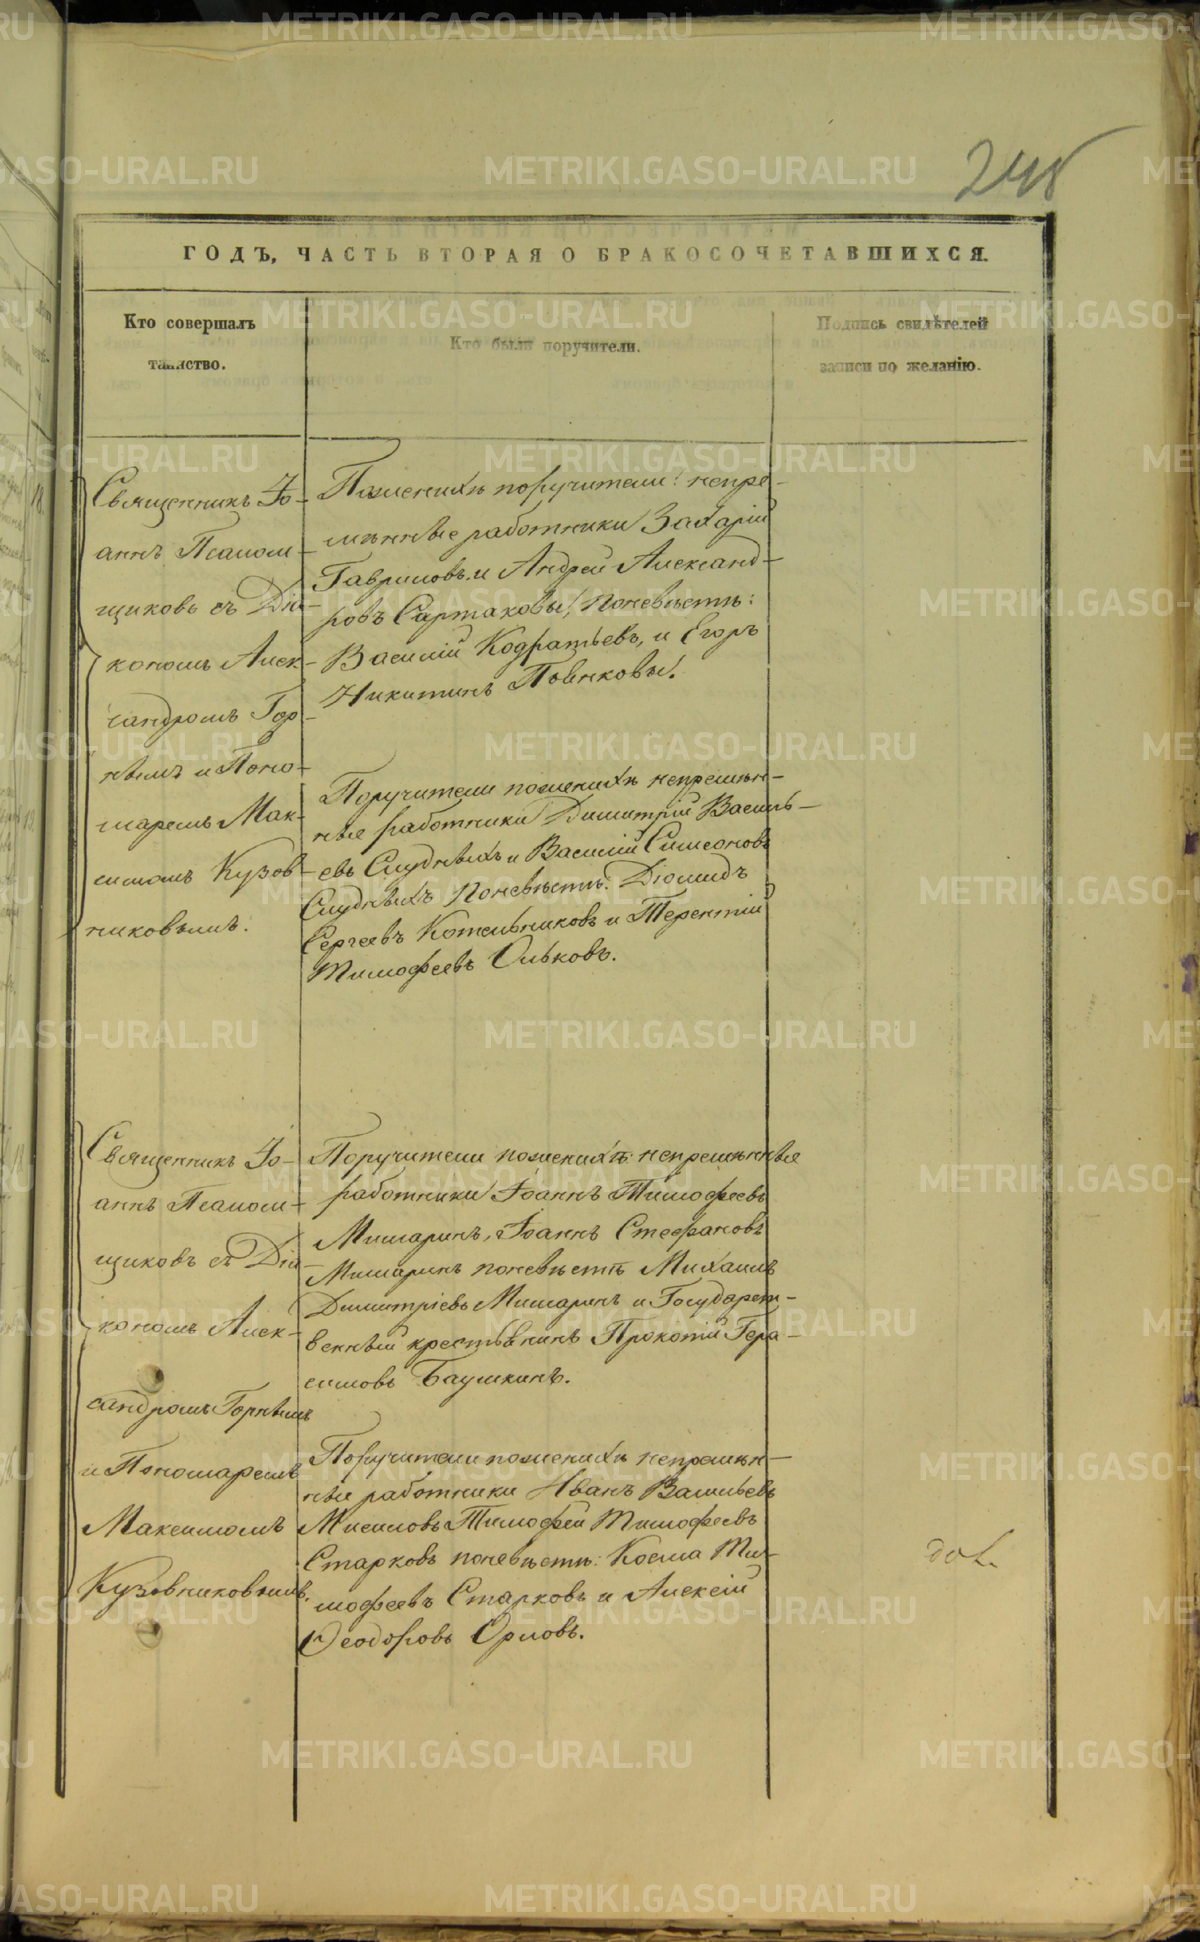 248
ГОДЪ, ЧАСТЬ ВТОРАЯ О БРАКОСОЧЕТАВШИХСЯ.
Кто совершалъ
таинство.
Кто были поручители.
Подпись свидѣтелей
записи по желанію.
Священникъ Іо-
аннъ Псаломщи-
щиковъ съ Діа-
кономъ Алек-
сандромъ Гор-
нымъ и Поно-
маремъ Мак-
симомъ Кузов-
никовымъ.
По женихѣ поручители: непре-
мѣнные работники Захарій
Гавриловъ и Андрей Александ-
ровъ Сартаковы, по невѣстѣ:
Василій Кодратьевъ, и Егоръ
Никитинъ
Поручители по женихѣ непремѣн-
ные работники Димитрій Василь-
евъ Слудныхъ и Василій Симеоновъ
Слудныхъ по невѣстѣ: Діомидъ
Сергеевъ Котельниковъ и Терентій
Тимофеевъ Ольковъ.
Священникъ Іо-
аннъ Псалом-
щиковъ съ Діа-
кономъ Алек-
сандромъ Горнымъ
и Пономаремъ
Максимомъ
Кузовниковымъ.
Поручители по женихѣ: непремѣнные
работники Іоаннъ Тимофеевъ
Мишаринъ, Іоаннъ Стефановъ
Мишаринъ по невѣстѣ Михаилъ
Димитріевъ Мишаринъ и Государст-
венный крестьянинъ Прокопій Гера-
симовъ Баушкинъ.
Поручители по женихѣ непремѣн-
ные работники Иванъ Васильевъ
Тимофей Тимофеевъ
Старковъ по невѣстѣ: Косма Ти-
мофеевъ Старковъ и Алексій
Ѳеодоровъ Орловъ.
METRIKI.GASO-URAL.RU